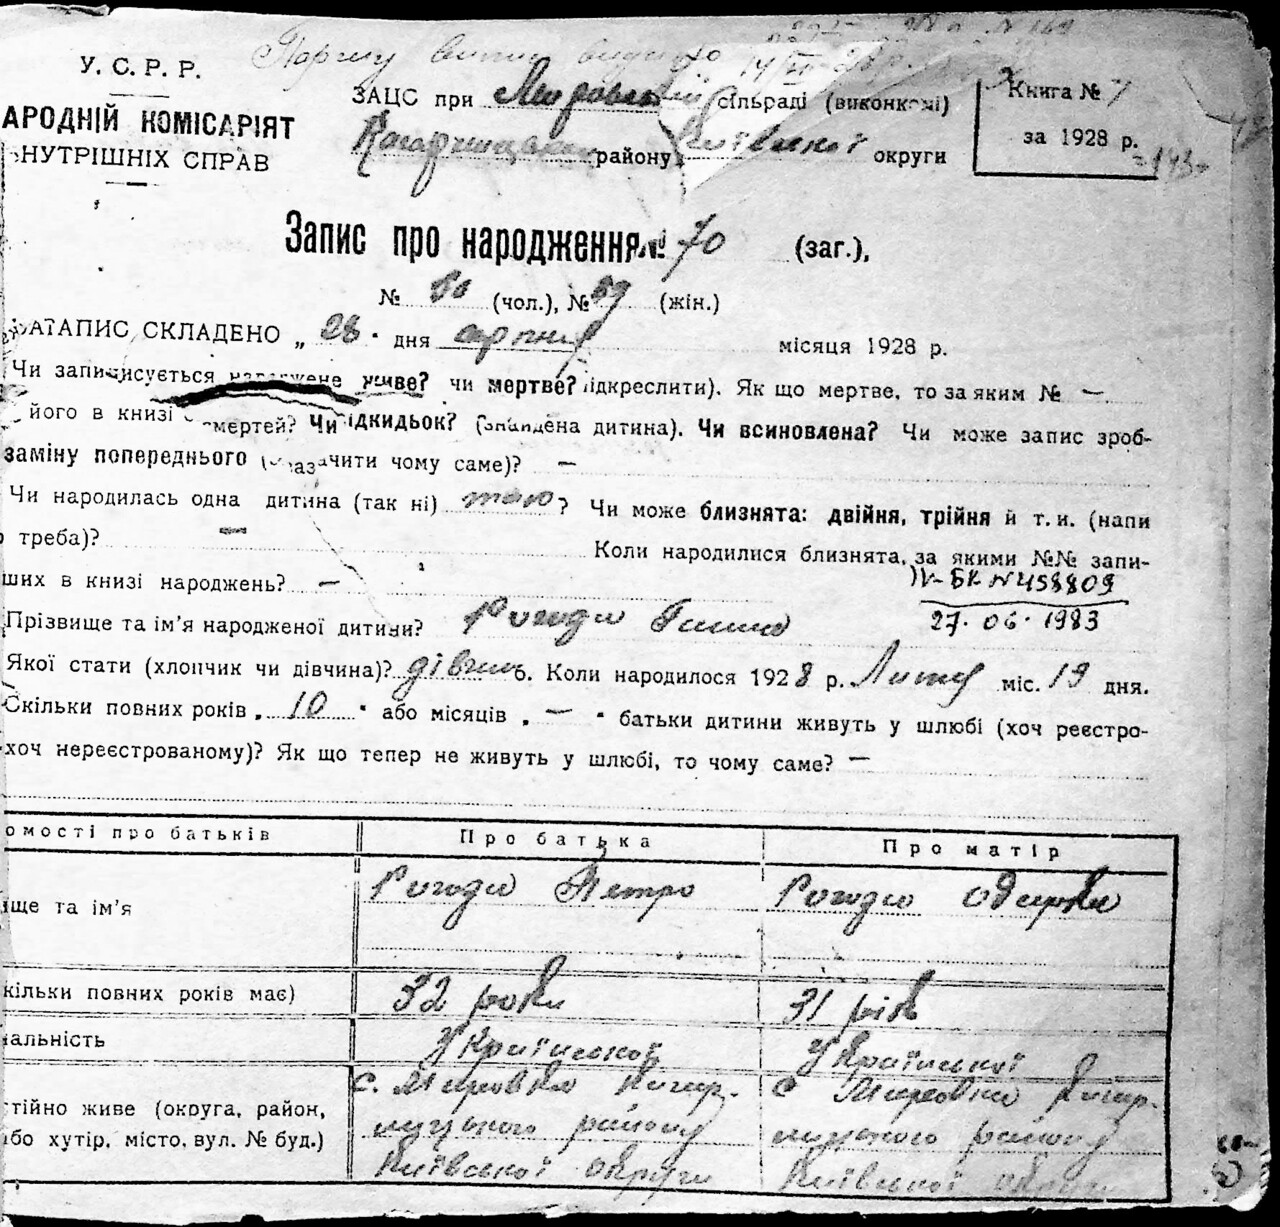 У. С. Р. Р.
АРОДНІЙ КОМІСАРІЯТ
ВНУТРІШНІХ СПРАВ
ЗАЦС при сільраді (виконкомі)
району Київської округи
Книга № 7
за 1928 р.
Запис про народження № 70 (заг.),
№ (чол.), № (жін.)
АТАПИС СКЛАДЕНО „ 28 " дня серпня місяця 1928 р.
Чи записується народжене живе? чи мертве? підкреслити). Як що мертве, то за яким № —
його в книзі смертей? Чи підкидьок? (знайдена дитина). Чи всиновлена? Чи може запис зроб-
заміну попереднього (зазначити чому саме)? —
Чи народилась одна дитина (так ні) так? Чи може близнята: двійня, трійня й т. и. (напи
треба)? — Коли народилися близнята, за якими №№ запи-
ших в книзі народжень? —
IV-БК N 458809
27. 06. 1983
Прізвище та ім'я народженої дитини? Рогоди Ганна
Якої стати (хлопчик чи дівчина)? дівчин. Коли народилося 1928 р. Лютий міс. 19 дня.
Скільки повних років „ 10 " або місяців „ — " батьки дитини живуть у шлюбі (хоч реєстро-
хоч нереєстрованому)? Як що тепер не живуть у шлюбі, то чому саме? —
омості про батьків Про батька Про матір
ище та ім'я Рогоди Петро Рогоди Одарка
кільки повних років має) 32 роки 31 рік
нальність Української Української
стійно живе (округа, район, с. Мировка Кагар- с Мировка Кагар-
або хутір, місто, вул. № буд.) лицького району лицького району
Київської округи Київської округи